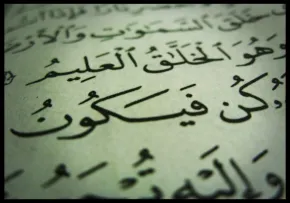 خَلَقَ ٱلسَّمَٰوَٰتِ وَٱلْأَرْ
وَهُوَ ٱلْخَلَّٰقُ ٱلْعَلِيمُ
كُن فَيَكُونُ
وَإِلَيْهِ